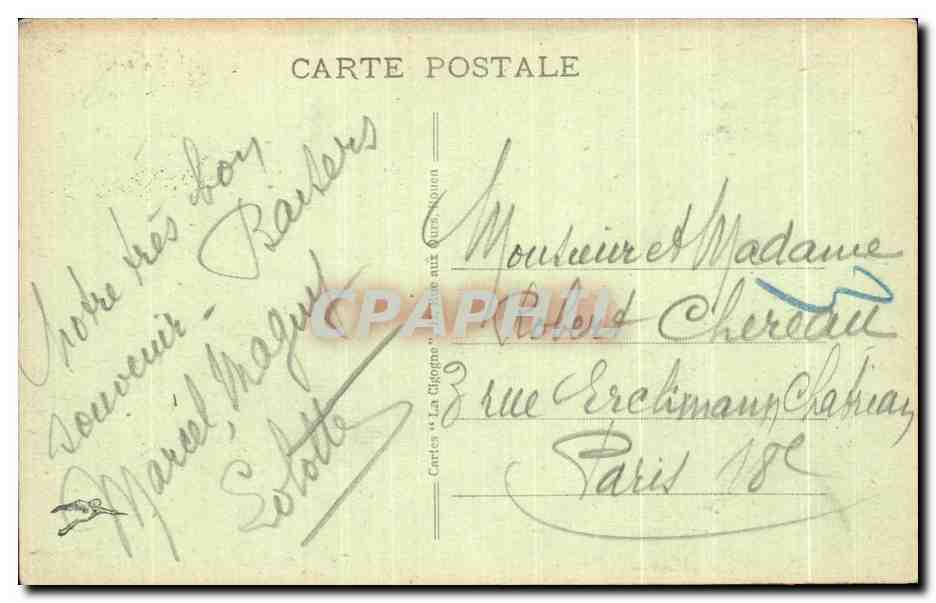 CARTE POSTALE
Notre très bon
souvenir - Baisers
Marcel, Maguy
Lolotte
Cartes "La Cigogne" Rue aux Ours, Rouen
Monsieur et Madame
Robert Chereau
3 rue Erckmann Chatrian
Paris 18e
CPAPHIL